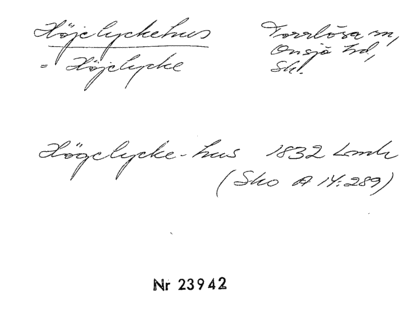 Höjelyckehus Torrlösa sn,
= Höjelycke Onsjö hd,
Sk.
Högelycke-hus 1832 Lmh
(Sko A 14:289)
Nr 23942